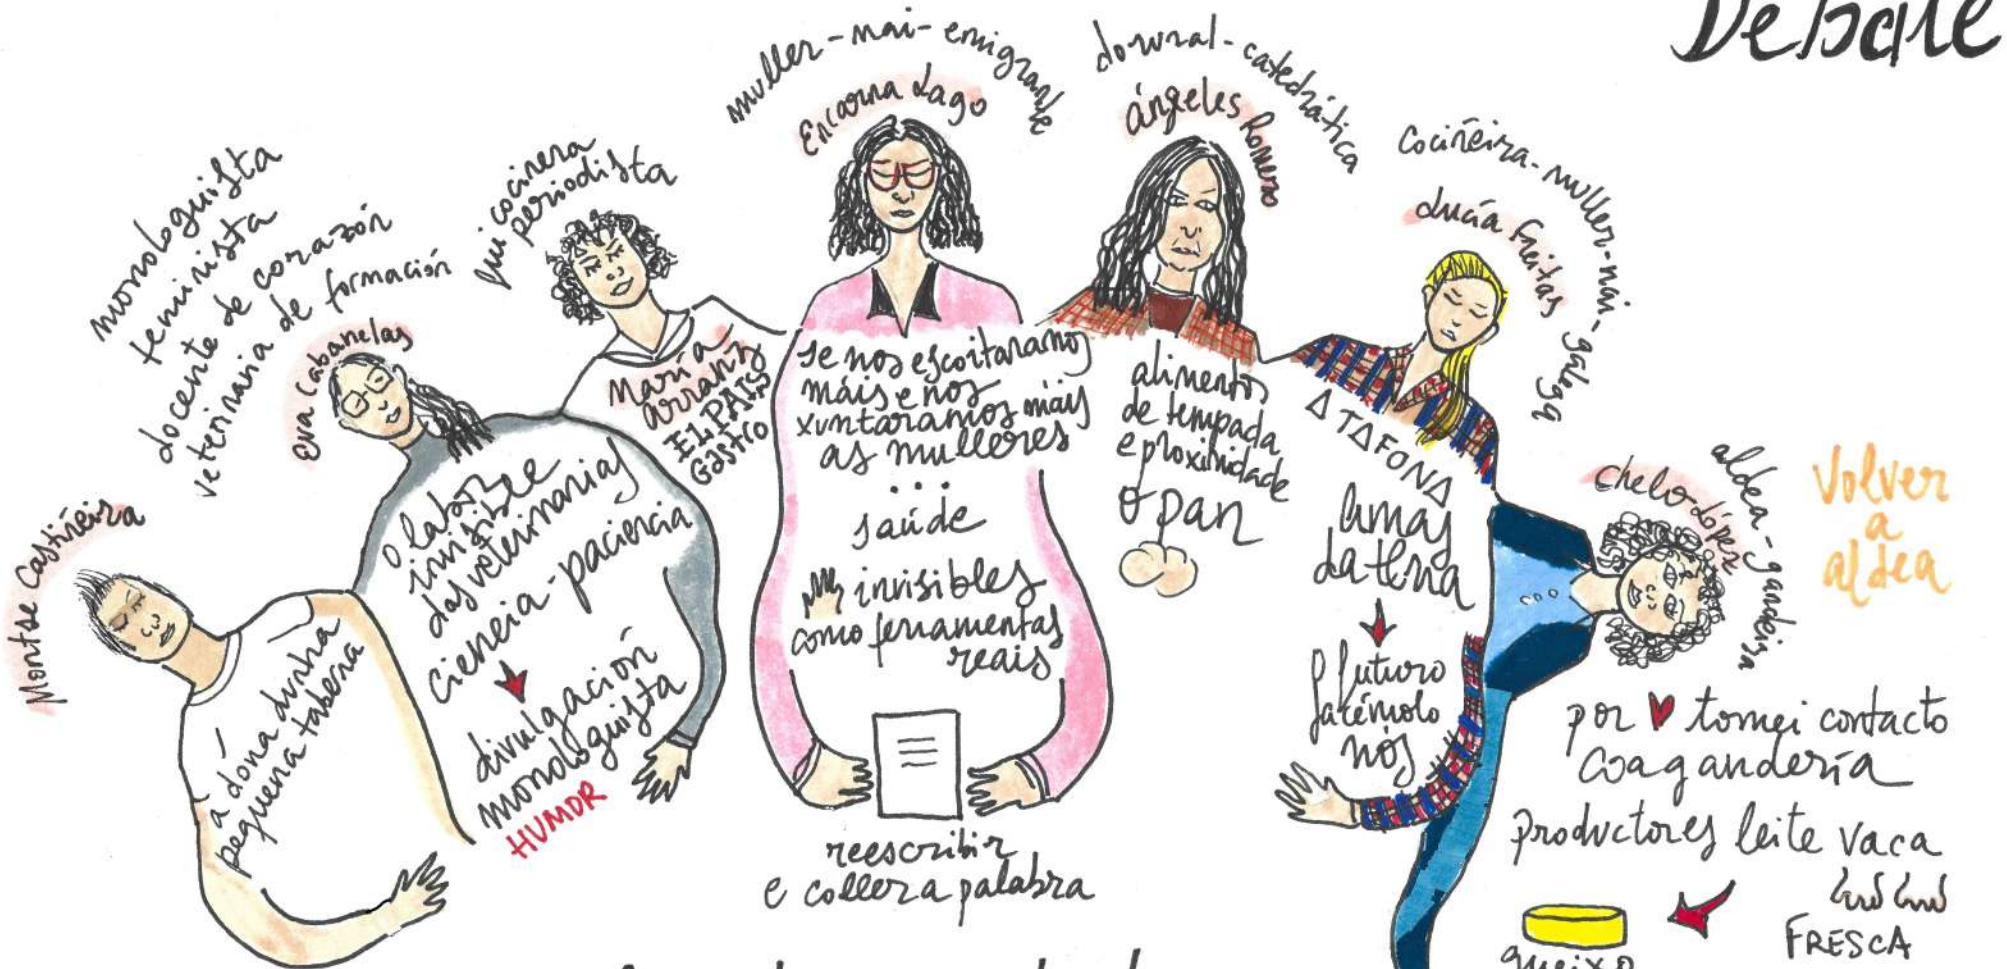 Debate
Montse Castiñeira
a dona dunha
pequena taberna
monologuista
feminista
docente de corazón
veterinaria de formación
Eva Cabanelas
o labor
invisible
das veterinarias
ciencia-paciencia
divulgación
monologuista
HUMOR
fun cociñera
periodista
María
Arranz
EL PAIS
Gastro
muller-nai-emigrante
Encarna Lago
se nos escoitaramos
máis e nos
xuntaramos máis
as mulleres
...
saúde
invisibles
como ferramentas
reais
reescribir
e coller a palabra
do rural-catedrática
ángeles Romero
alimentos
de tempada
e proximidade
o pan
cociñeira-muller-nai-galega
Lucía Freitas
A TAFONA
Amas
da terra
o futuro
farémolo
nós
chelo López
aldea-gandeira
Volver
a
aldea
por ♥ tomei contacto
coa gandería
productores leite vaca
FRESCA
queixo